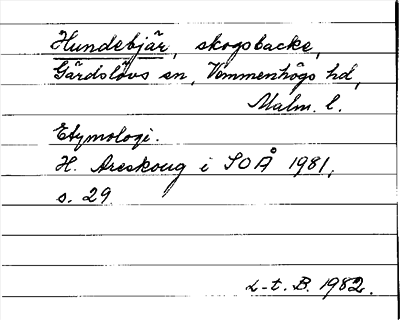 Hundebjär, skogsbacke,
Gärdslövs sn, Vemmenhögs hd,
Malm. l.
Etymologi.
H. Areskoug i SOÅ 1981,
s. 29
L-t. B. 1982.